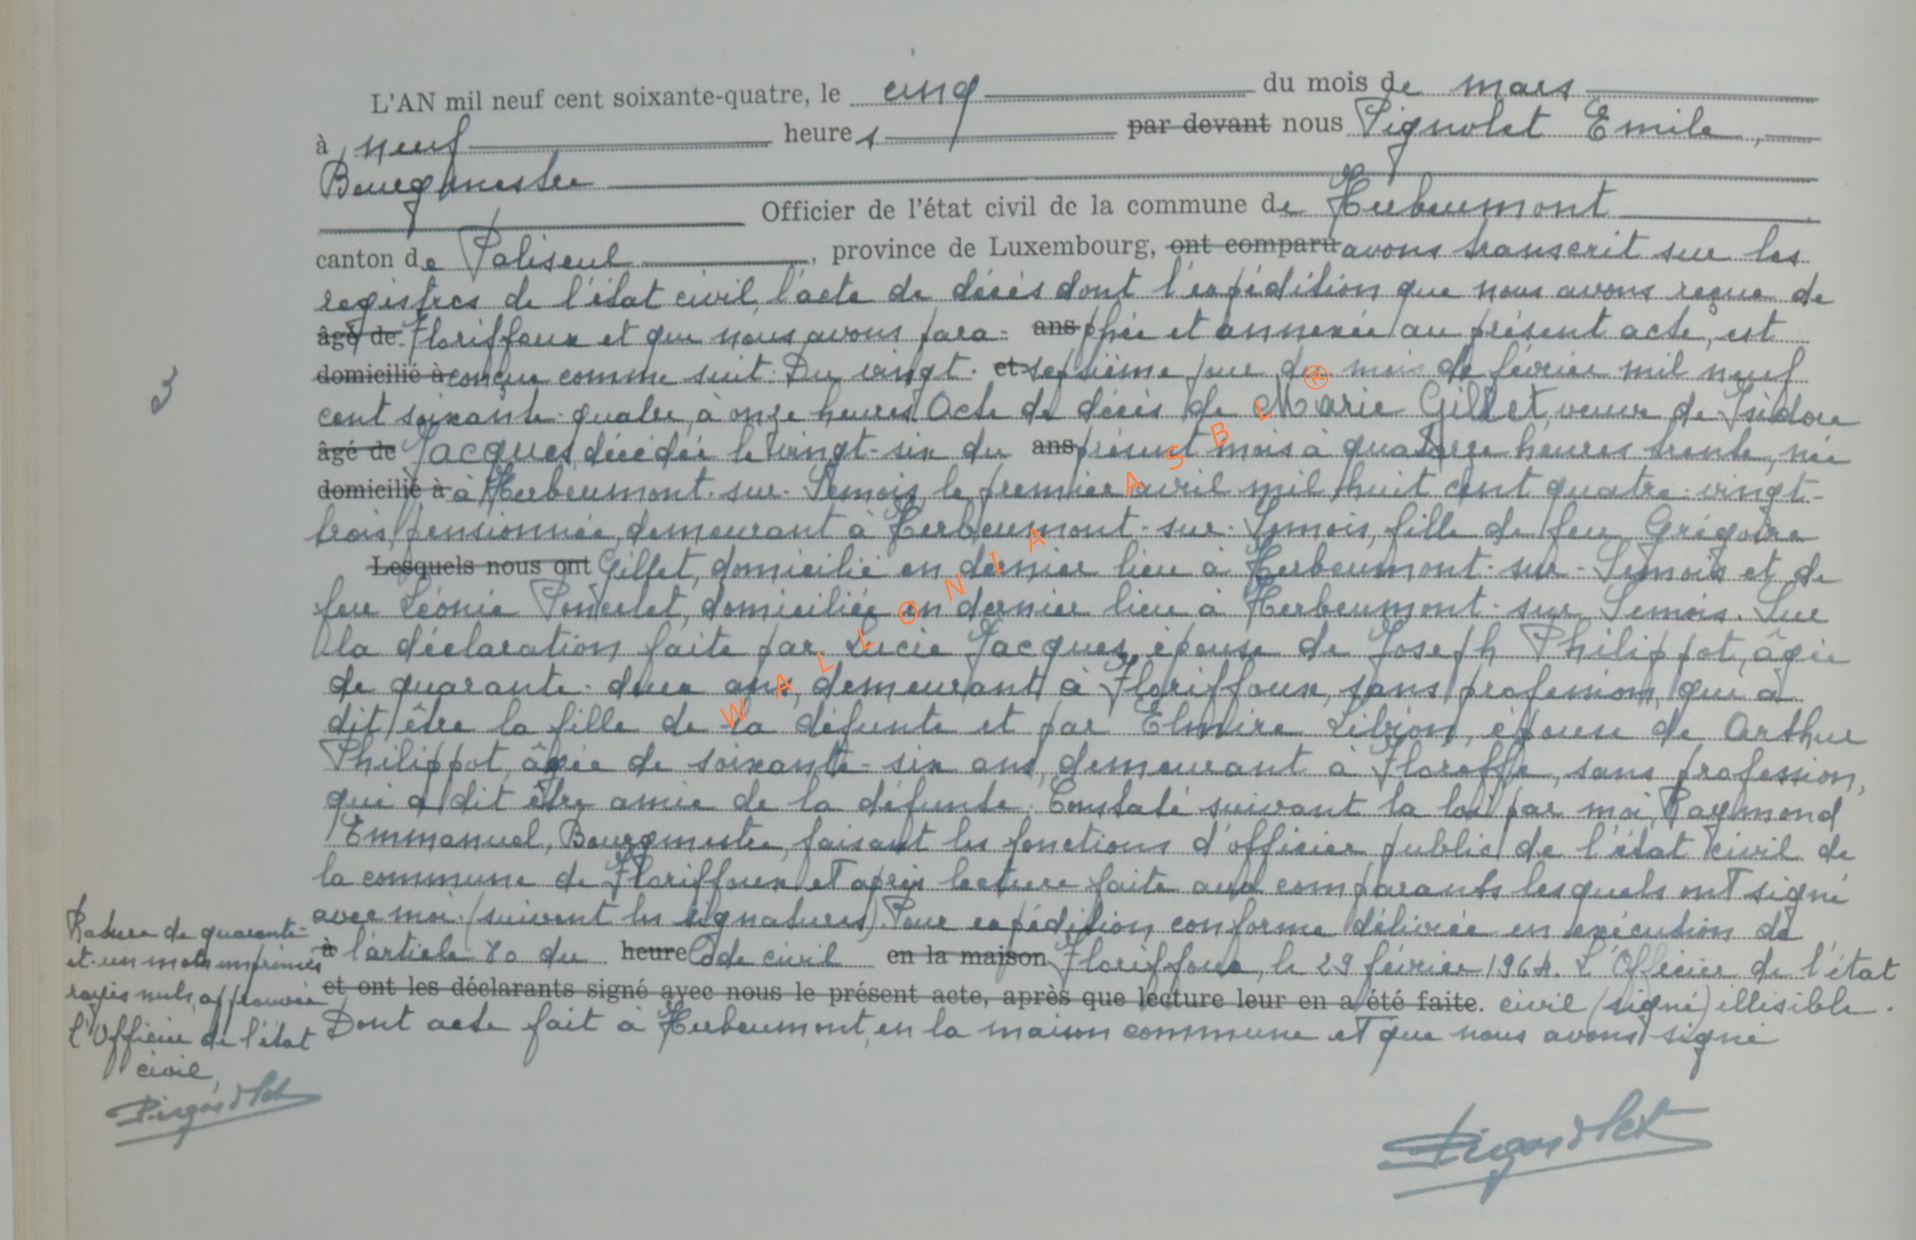 L'AN mil neuf cent soixante-quatre, le cinq du mois de mars
à neuf heures par devant nous Pignolet Emile,
Bourgmestre
Officier de l'état civil de la commune de Herbeumont
canton de Paliseul, province de Luxembourg, ont comparu avons transcrit sur les
registres de l'état civil, l'acte de décès dont l'expédition que nous avons reçue de
âgé de Floriffoux et que nous avons para- ans phée et annexée au présent acte, est
domicilié à conçue comme suit: Du vingt- et septième jour du mois de février mil neuf
cent soixante-quatre, à onze heures. Acte de décès de Marie Gillet, veuve de Isidore
âgé de Jacques, décédée le vingt-six du ans présent mois à quatorze heures trente, née
domicilié à à Herbeumont-sur-Semois, le premier avril mil huit cent quatre-vingt-
trois, pensionnée, demeurant à Herbeumont-sur-Semois, fille de feu Grégoire
Lesquels nous ont Gillet, domicilié en dernier lieu à Herbeumont-sur-Semois et de
feu Léonie Poncelet, domiciliée en dernier lieu à Herbeumont-sur-Semois. Sur
la déclaration faite par Lucie Jacques, épouse de Joseph Philippot, âgée
de quarante-deux ans, demeurant à Floriffoux, sans profession, qui a
dit être la fille de la défunte et par Elmire Libion, épouse de Arthur
Philippot, âgée de soixante-six ans, demeurant à Floreffe, sans profession,
qui a dit être amie de la défunte. Constaté suivant la loi par moi, Raymond
Emmanuel, Bourgmestre, faisant les fonctions d'officier public de l'état civil de
la commune de Floriffoux et après lecture faite aux comparants lesquels ont signé
avec moi. (suivent les signatures) Pour expédition conforme délivrée en exécution de
à l'article 80 du heure Code civil en la maison Floriffoux, le 29 février 1964. L'Officier de l'état
et ont les déclarants signé avec nous le présent acte, après que lecture leur en a été faite. civil (signé) illisible.
Dont acte fait à Herbeumont, en la maison commune et que nous avons signé
3
Rature de quarante-
et-un mots imprimés
rayés nuls, approuvée
L'Officier de l'état
civil,
WALLONIA ASBL ®